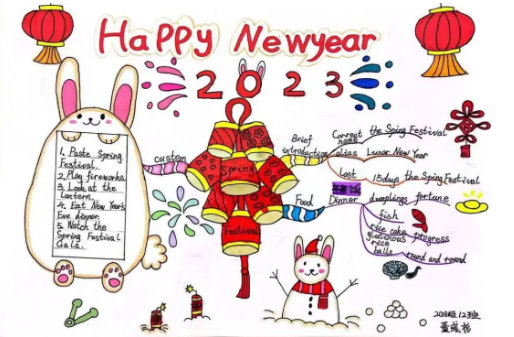 Happy Newyear
2023
1. Paste Spring
Festival.
2. Play fireworks.
3. Look at the
lantern.
4. Eat New Year's
Eve dinner.
5. Watch the
Spring Festival
Gala.
custom
Spring
Festival
Brief
introduction
Correct
name
the Sping Festival
alias
Lunar New Year
Last
15days the Spring Festival
Food
Dinner
dumplings fortane
fish
rice cake progress
glutinous
rice
balls
round and round
12班